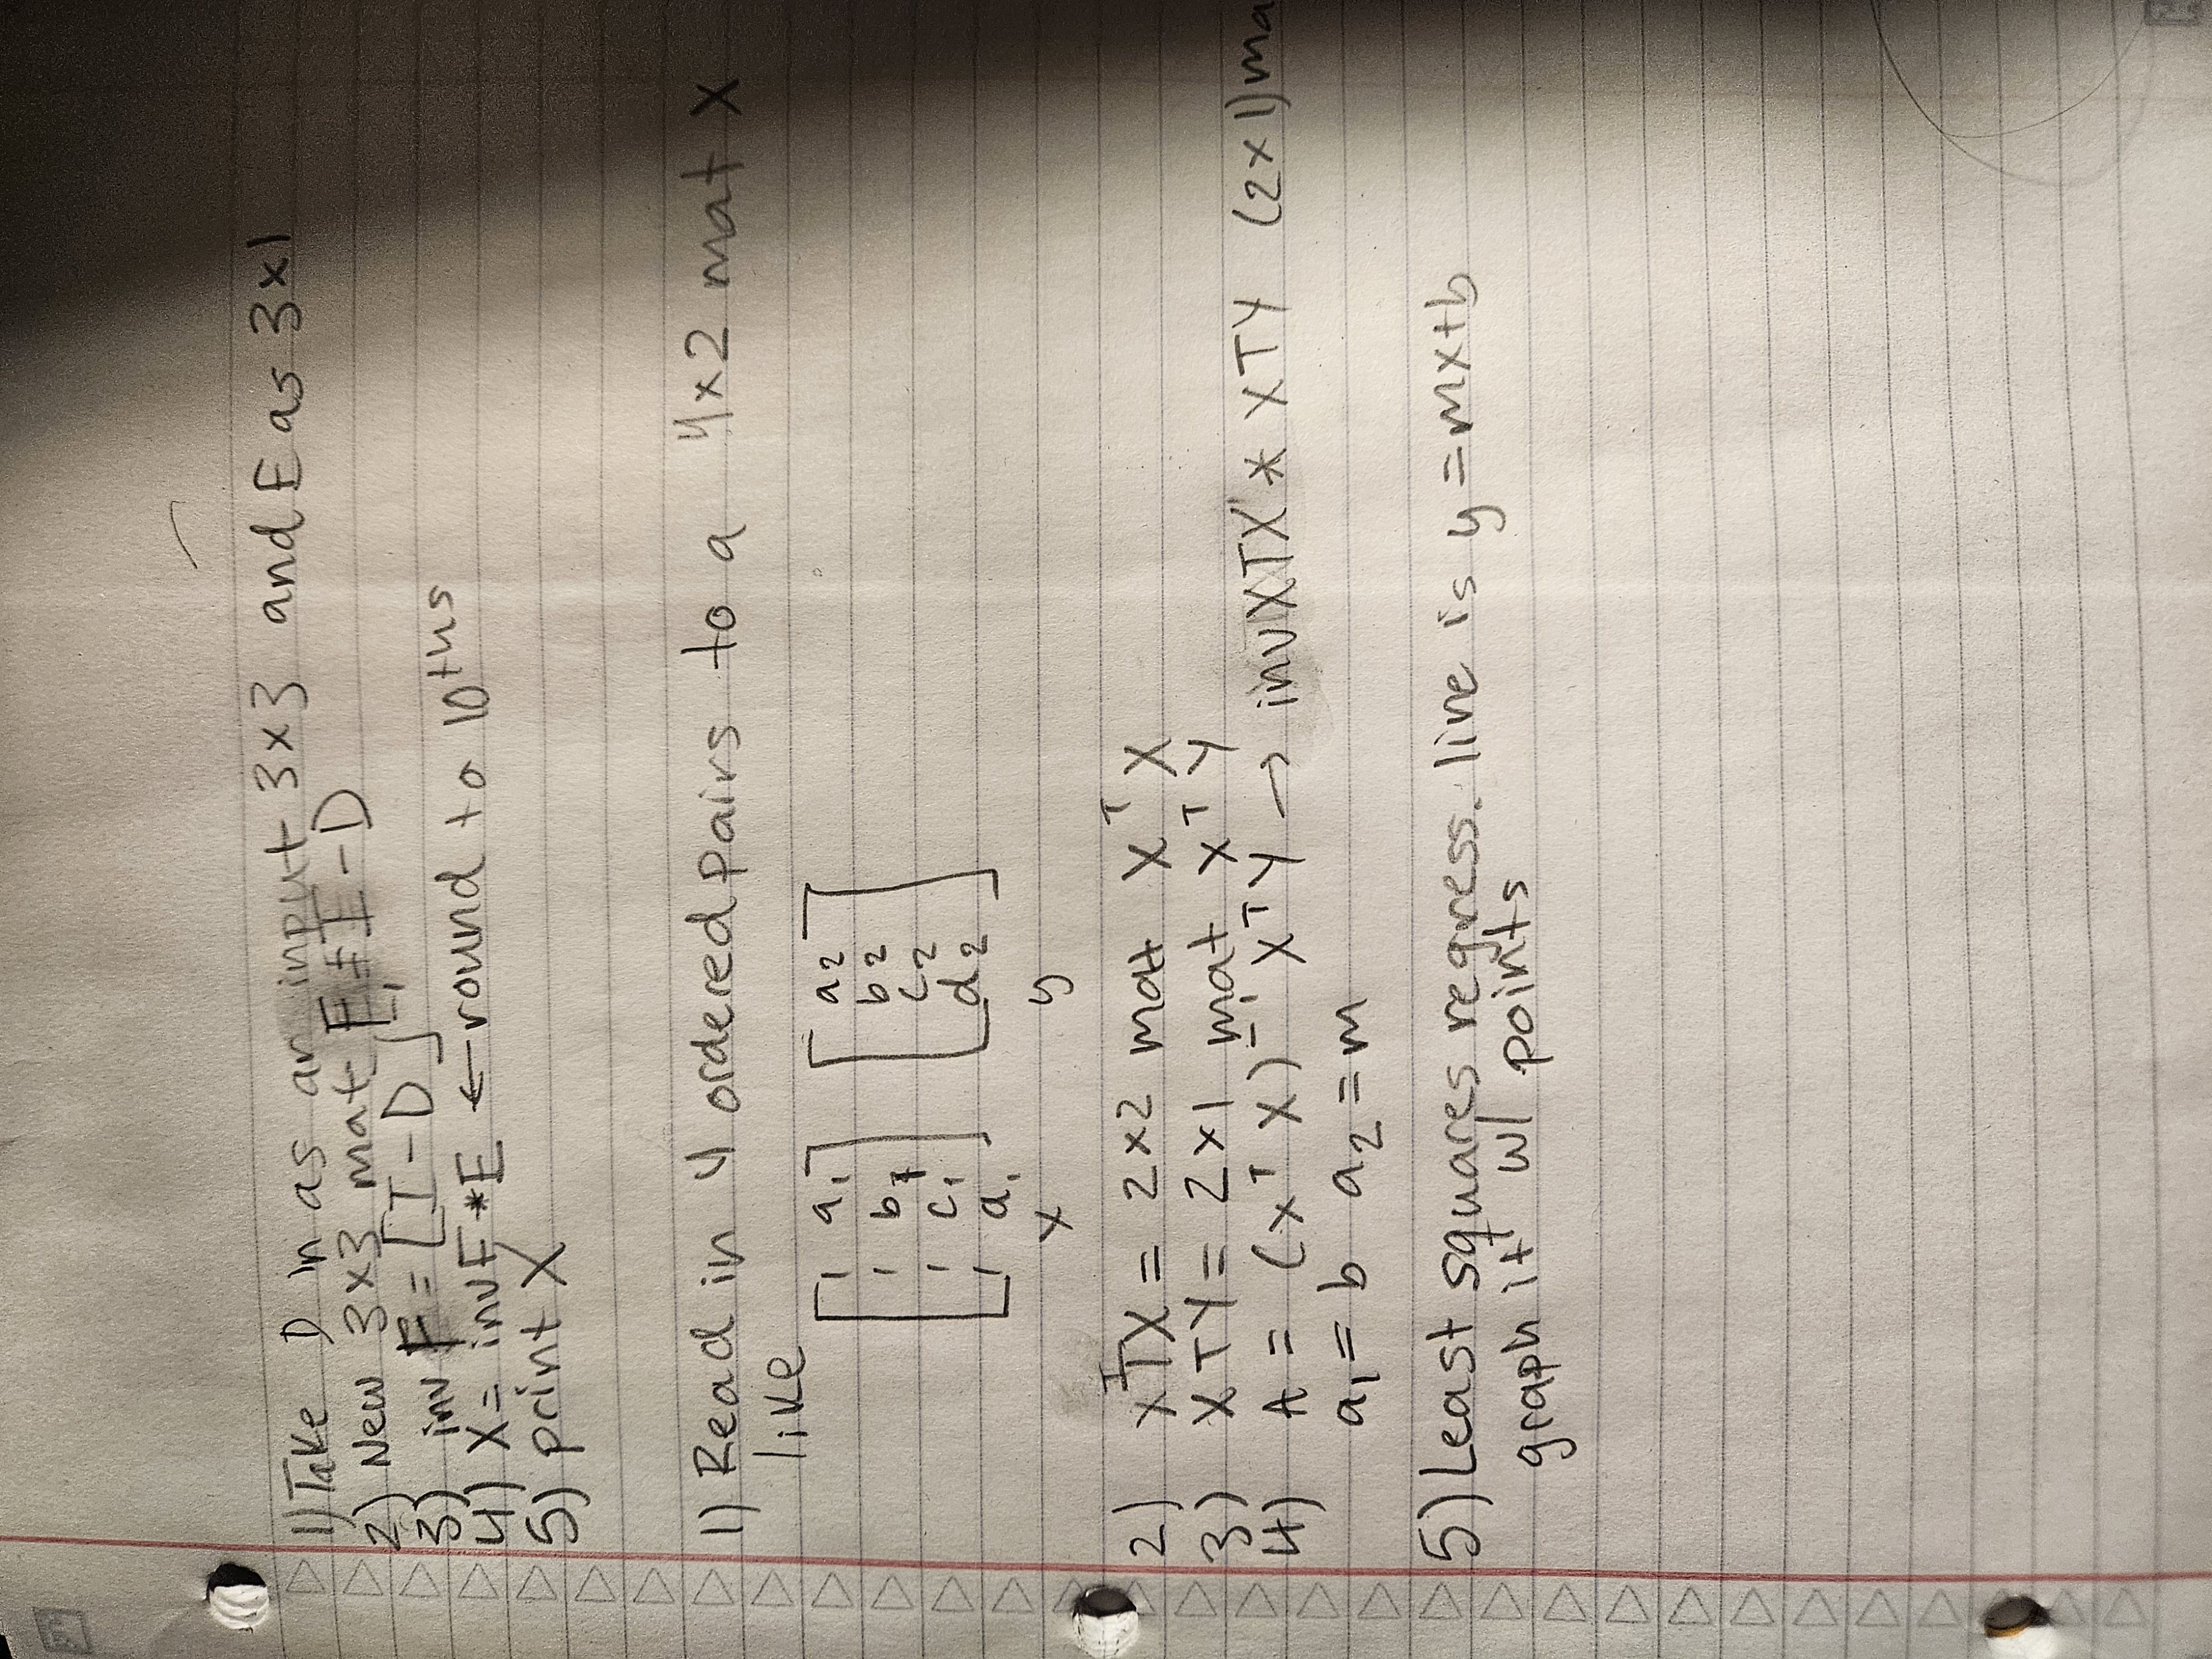 1) Take D in as an input 3x3 and E as 3x1
2) New 3x3 mat F = I - D
3) inv F = [I - D]⁻¹
4) X = inv F * E ← round to 10ths
5) print X
1) Read in 4 ordered pairs to a 4x2 mat X
like
[1 a₁] [a₂]
[1 b₁] [b₂]
[1 c₁] [c₂]
[1 d₁] [d₂]
X y
2) XTX = 2x2 mat XᵀX
3) XTY = 2x1 mat XᵀY
4) A = (XᵀX)⁻¹ XᵀY → invXTX * XTY (2x1) ma
a₁ = b a₂ = m
5) Least squares regress. line is y = mx+b
graph it w/ points